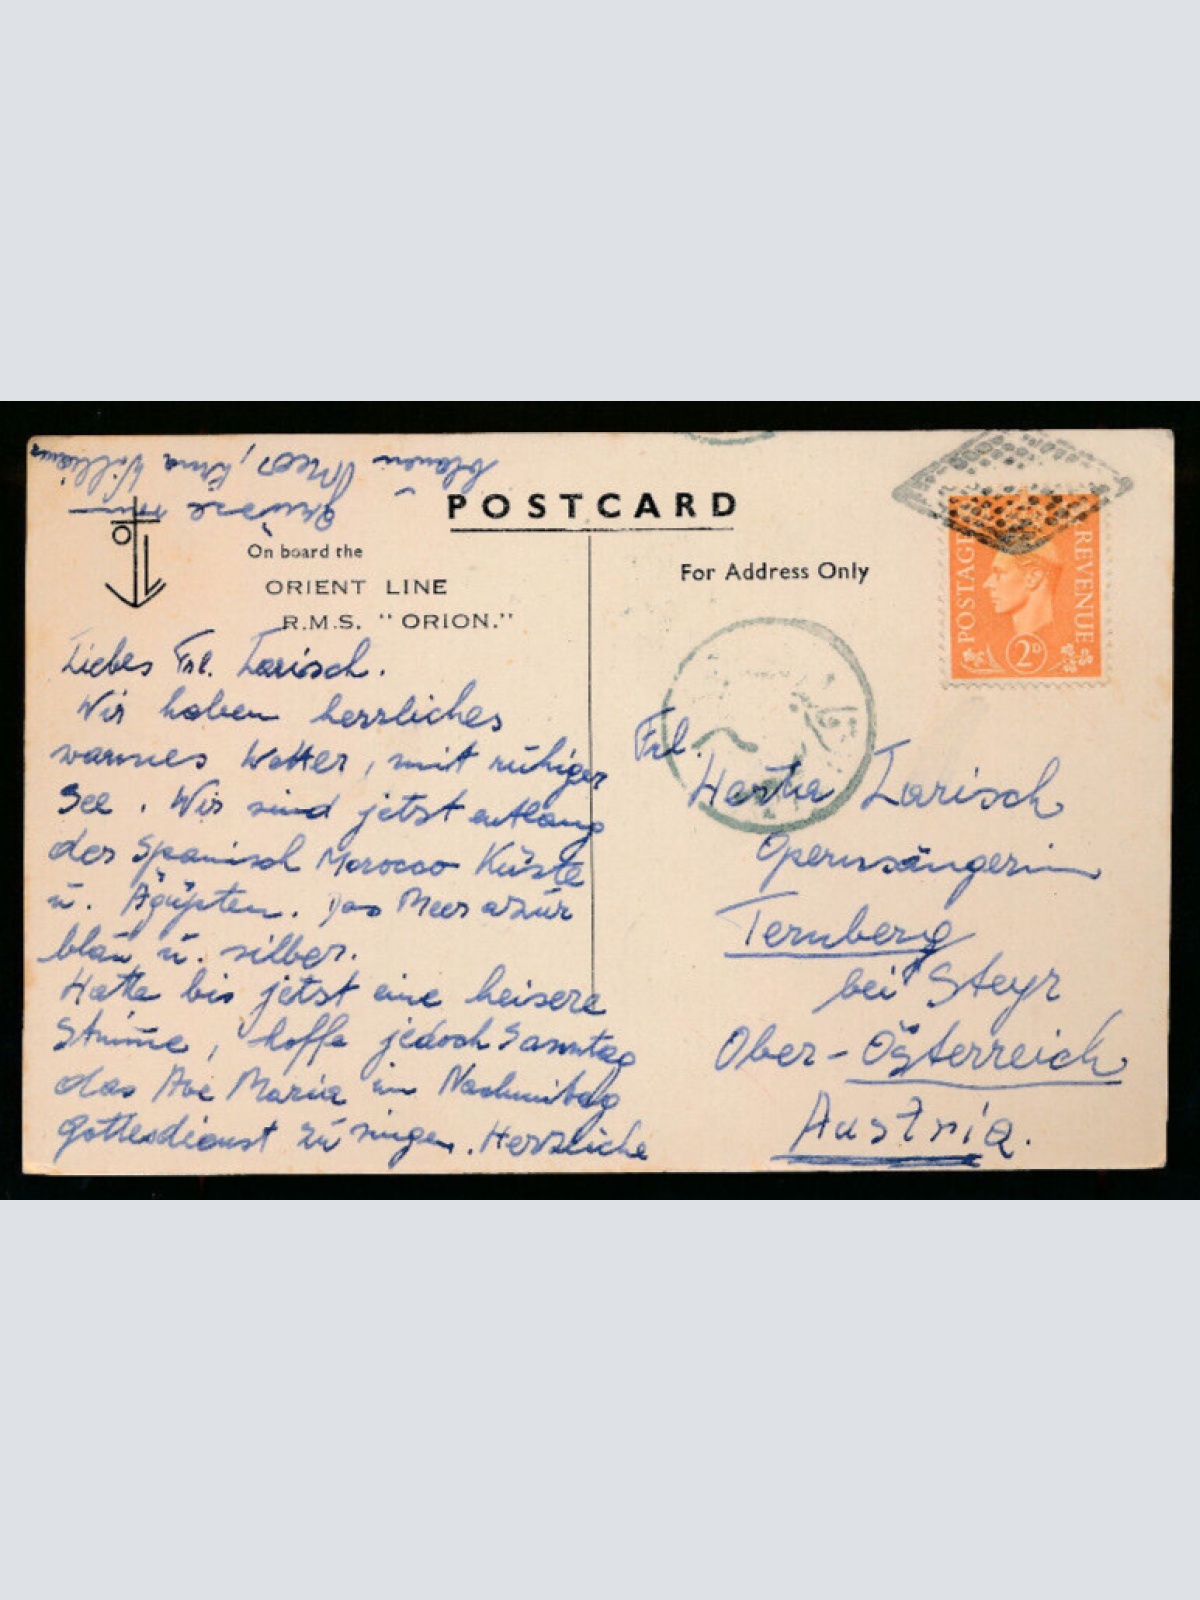 POSTCARD
On board the
ORIENT LINE
R.M.S. "ORION."
For Address Only
POSTAGE
REVENUE
2D
Liebes Frl. Larisch.
Wir haben herrliches
warmes Wetter, mit ruhiger
See. Wir sind jetst entlang
der Spanisch Morocco Küste
u. Ägypten. Das Meer azur
blau u. silber.
Hatte bis jetst eine heisere
Stimme, hoffe jedoch Sonntag
das Ave Maria im Nachmittag
gottesdienst zu singen. Herzliche
Grüsse vom
blauen Meer, Erna
Frl.
Herta Larisch
Opernsängerin
Ternberg
bei Steyr
Ober-Österreich
Austria.